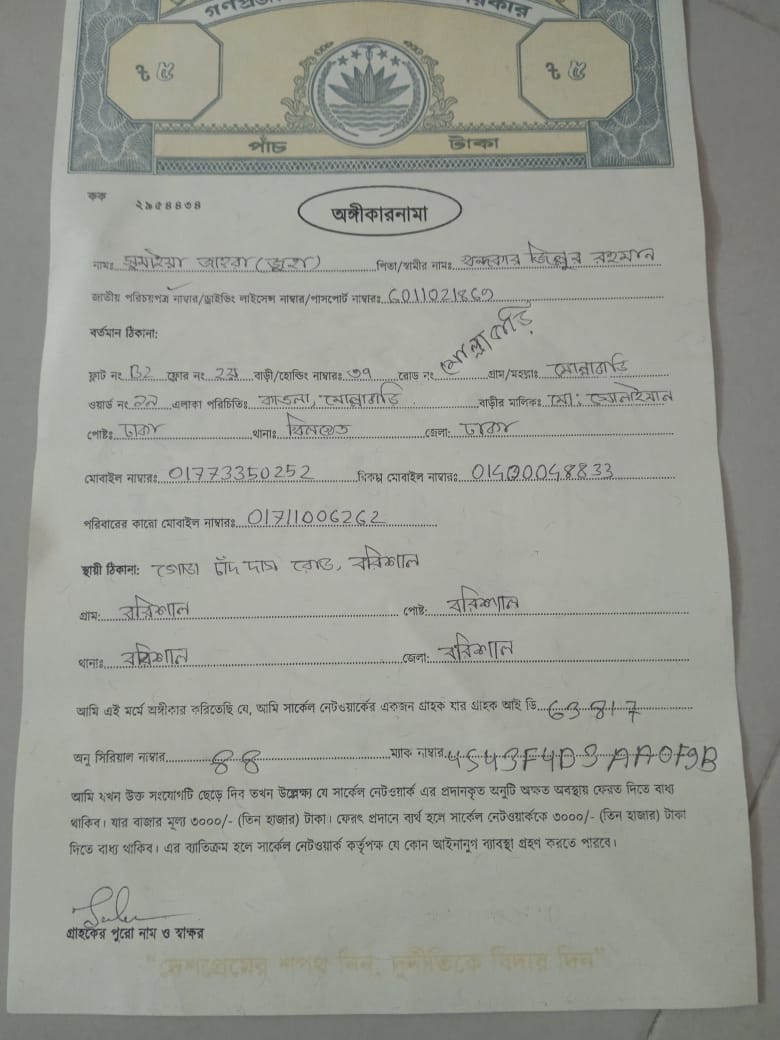 গণপ্রজা
রকার
৳ ৫
৳ ৫
পাঁচ টাকা
কক ২৯৫৪৪৩৪
অঙ্গীকারনামা
নামঃ সুমাইয়া জাহরা পিতা/স্বামীর নামঃ খন্দকার জিল্লুর রহমান
জাতীয় পরিচয়পত্র নাম্বার/ড্রাইভিং লাইসেন্স নাম্বার/পাসপোর্ট নাম্বারঃ 6011021869
বর্তমান ঠিকানা:
ফ্লাট নং B2 ফ্লোর নং ২য় বাড়ী/হোল্ডিং নাম্বারঃ ৩৭ রোড নং মোল্লাবাড়ি গ্রাম/মহল্লাঃ মোল্লাবাড়ি
ওয়ার্ড নং এলাকা পরিচিতিঃ কাওলা, মোল্লাবাড়ি বাড়ীর মালিকঃ মো:
পোষ্টঃ ঢাকা থানাঃ খিলক্ষেত জেলা: ঢাকা
মোবাইল নাম্বারঃ 01773350252 বিকল্প মোবাইল নাম্বারঃ 01400048833
পরিবারের কারো মোবাইল নাম্বারঃ 01711006262
স্থায়ী ঠিকানা: গোড়া চাঁদ দাস রোড, বরিশাল
গ্রাম: বরিশাল পোষ্ট: বরিশাল
থানাঃ বরিশাল জেলা: বরিশাল
আমি এই মর্মে অঙ্গীকার করিতেছি যে, আমি সার্কেল নেটওয়ার্কের একজন গ্রাহক যার গ্রাহক আই ডি 63817
অনু সিরিয়াল নাম্বার 88 ম্যাক নাম্বার 4S43F4D3AA0F9B
আমি যখন উক্ত সংযোগটি ছেড়ে দিব তখন উল্লেক্ষ্য যে সার্কেল নেটওয়ার্ক এর প্রদানকৃত অনুটি অক্ষত অবস্থায় ফেরত দিতে বাধ্য
থাকিব। যার বাজার মূল্য ৩০০০/- (তিন হাজার) টাকা। ফেরৎ প্রদানে ব্যর্থ হলে সার্কেল নেটওয়ার্ককে ৩০০০/- (তিন হাজার) টাকা
দিতে বাধ্য থাকিব। এর ব্যতিক্রম হলে সার্কেল নেটওয়ার্ক কর্তৃপক্ষ যে কোন আইনানুগ ব্যাবস্থা গ্রহণ করতে পারবে।
গ্রাহকের পুরো নাম ও স্বাক্ষর
"দেশপ্রেমের শপথ নিন, দুর্নীতিকে বিদায় দিন"